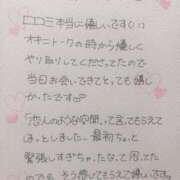 口コミ本当に嬉しいです(;;)
オキニトークの時から優しく
やり取りしてくださってたので
当日お会いできてとても嬉し
かったです。
「恋人のような空間」って言ってもらえて
ほっとしました。最初ちょっと
緊張しすぎちゃったなて思ってた
ので 感じてもらえて